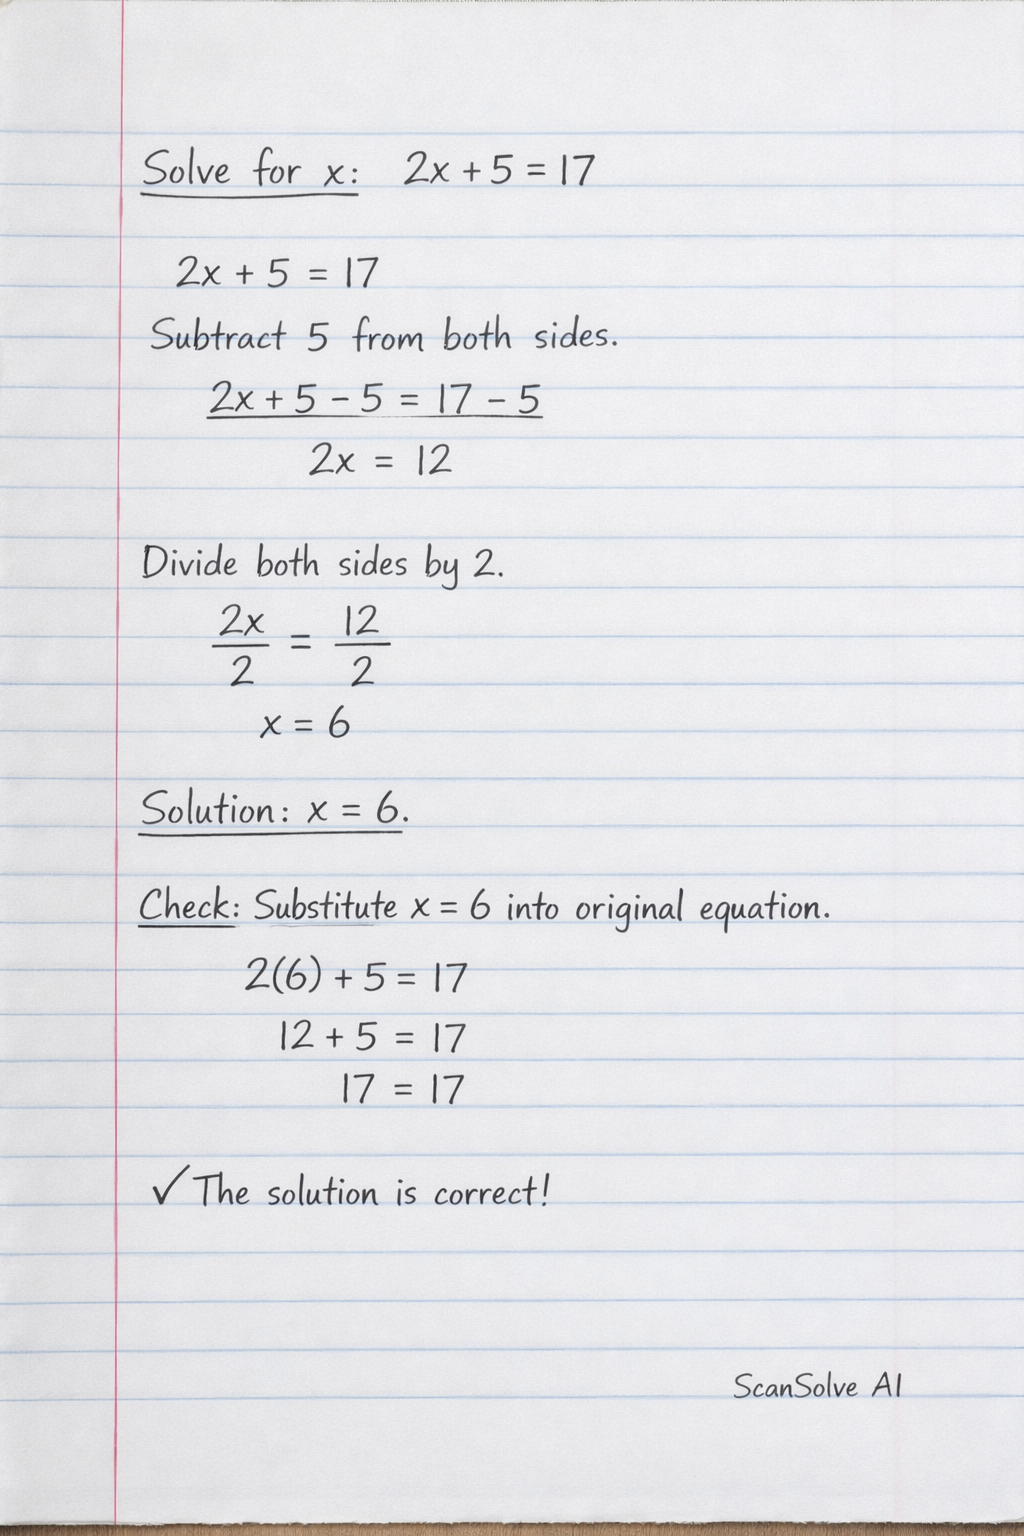 Solve for x: 2x + 5 = 17
2x + 5 = 17
Subtract 5 from both sides.
2x + 5 - 5 = 17 - 5
2x = 12
Divide both sides by 2.
2x/2 = 12/2
x = 6
Solution: x = 6.
Check: Substitute x = 6 into original equation.
2(6) + 5 = 17
12 + 5 = 17
17 = 17
✓ The solution is correct!
ScanSolve AI